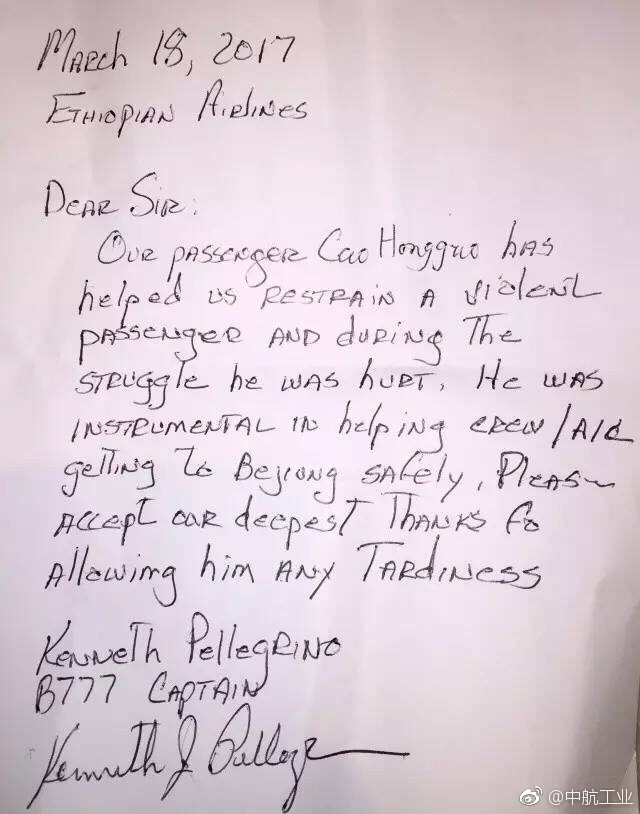 March 18, 2017
Ethiopian Airlines
Dear Sir:
Our passenger Cao Hongguo has
helped us restrain a violent
passenger and during the
struggle he was hurt. He was
instrumental in helping crew/A/C
getting to Bejiung safely. Please
accept our deepest thanks fo
allowing him any tardiness
Kenneth Pellegrino
B777 Captain
Kenneth J Pellegr
@中航工业